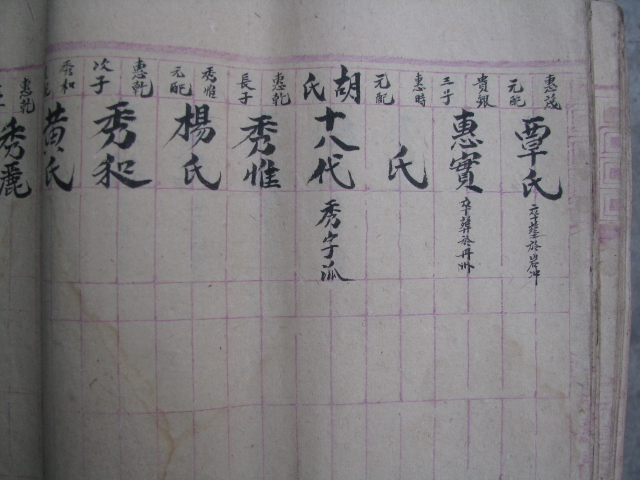 惠茂元配 覃氏 卒葬於岩冲
貴銀三子 惠寳 卒葬於丹州
惠時元配 氏
胡氏十八代 秀字派
惠乾長子 秀惟
秀惟元配 楊氏
惠乾次子 秀和
秀和 黄氏
惠乾 秀麗